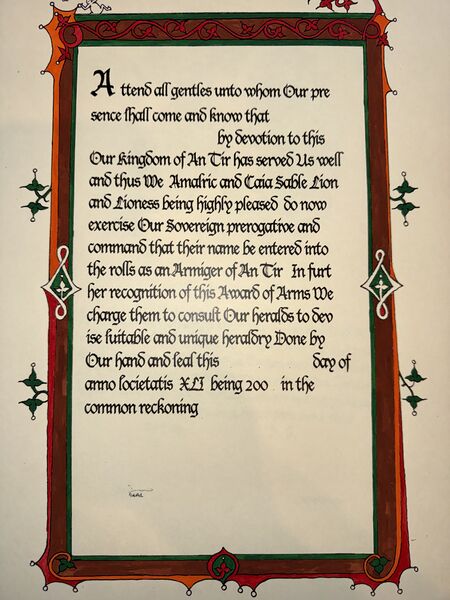 Attend all gentles unto whom Our pre
sence ſhall come and know that
by devotion to this
Our Kingdom of An Tir has served Us well
and thus We Amalric and Caia Sable Lion
and Lioness being highly pleased do now
exercise Our Sovereign prerogative and
command that their name be entered into
the rolls as an Armiger of An Tir In furt
her recognition of this Award of Arms We
charge them to conſult Our heralds to dev
ise ſuitable and unique heraldry Done by
Our hand and ſeal this day of
anno ſocietatis XLI being 200 in the
common reckoning